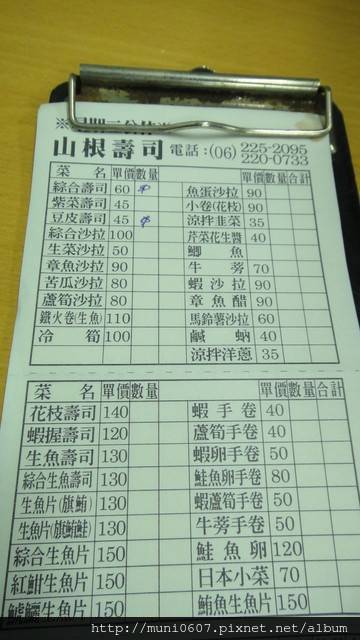 山根壽司 電話:(06) 225-2095
220-0733
菜 名 單價 數量 單價 數量 合計
綜合壽司 60 魚蛋沙拉 90
紫菜壽司 45 小卷(花枝) 90
豆皮壽司 45 涼拌韭菜 35
綜合沙拉 100 芹菜花生醬 40
生菜沙拉 50 鯽 魚
章魚沙拉 90 牛 蒡 70
苦瓜沙拉 80 蝦沙拉 90
蘆筍沙拉 80 章魚醋 90
鐵火卷(生魚) 110 馬鈴薯沙拉 60
冷 筍 100 鹹 蚋 40
涼拌洋蔥 35
菜 名 單價 數量 單價 數量 合計
花枝壽司 140 蝦手卷 40
蝦握壽司 120 蘆筍手卷 40
生魚壽司 130 蝦卵手卷 50
綜合生魚壽司 130 鮭魚卵手卷 80
生魚片(旗鮪) 130 蝦蘆筍手卷 50
生魚片(旗鮪鮭) 130 牛蒡手卷 50
綜合生魚片 150 鮭魚卵 120
紅魽生魚片 150 日本小菜 70
生魚片 150 鮪魚生魚片 150
http://muni0607.pixnet.net/album